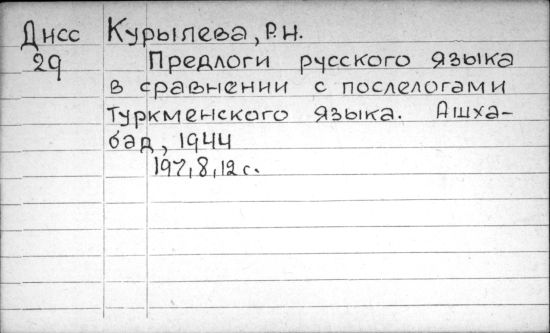 Дисс Курылева, Р.Н.
29 Предлоги русского языка
в сравнении с послелогами
туркменского языка. Ашха-
бад, 1944
197, 8, 12 с.